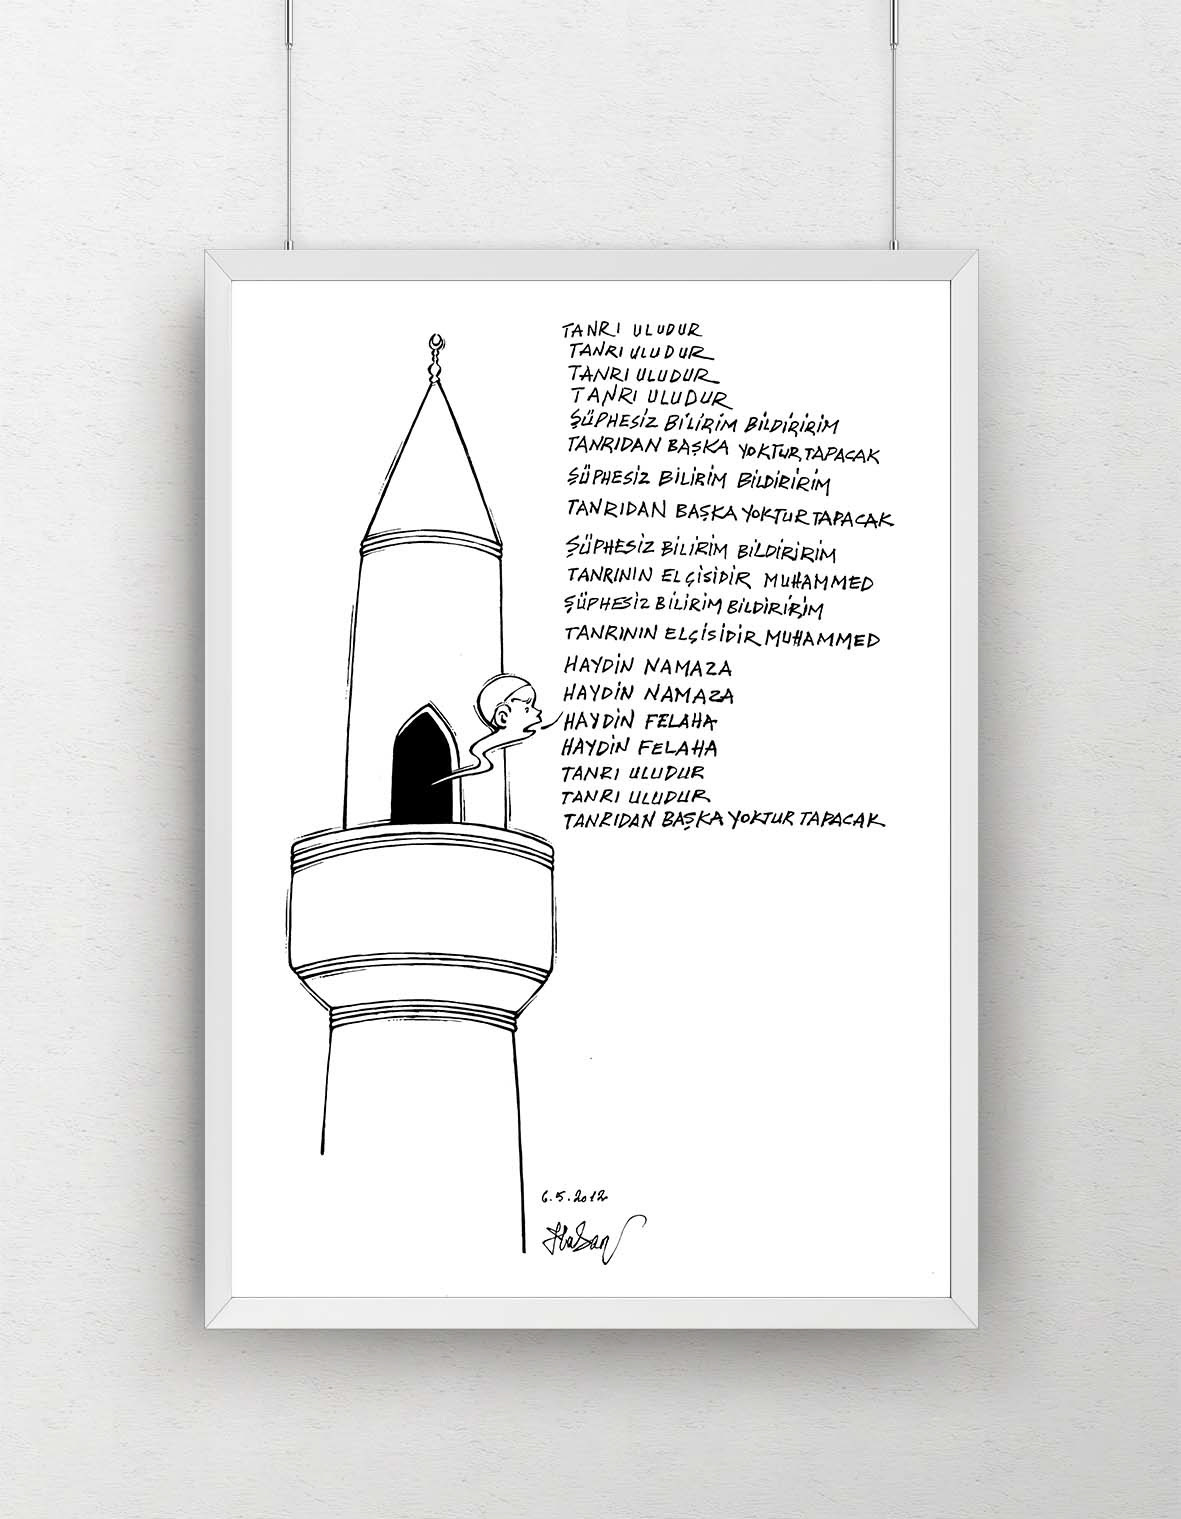 TANRI ULUDUR
TANRI ULUDUR
TANRI ULUDUR
TANRI ULUDUR
ŞÜPHESİZ BİLİRİM BİLDİRİRİM
TANRIDAN BAŞKA YOKTUR TAPACAK
ŞÜPHESİZ BİLİRİM BİLDİRİRİM
TANRIDAN BAŞKA YOKTUR TAPACAK
ŞÜPHESİZ BİLİRİM BİLDİRİRİM
TANRININ ELÇİSİDİR MUHAMMED
ŞÜPHESİZ BİLİRİM BİLDİRİRİM
TANRININ ELÇİSİDİR MUHAMMED
HAYDİN NAMAZA
HAYDİN NAMAZA
HAYDİN FELAHA
HAYDİN FELAHA
TANRI ULUDUR
TANRI ULUDUR
TANRIDAN BAŞKA YOKTUR TAPACAK
6.5.2012
Hasan